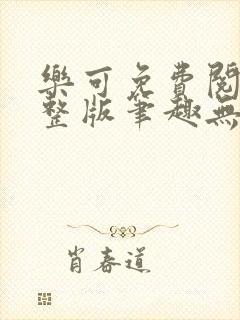 樂可免費閱
整版筆趣無
肖春道